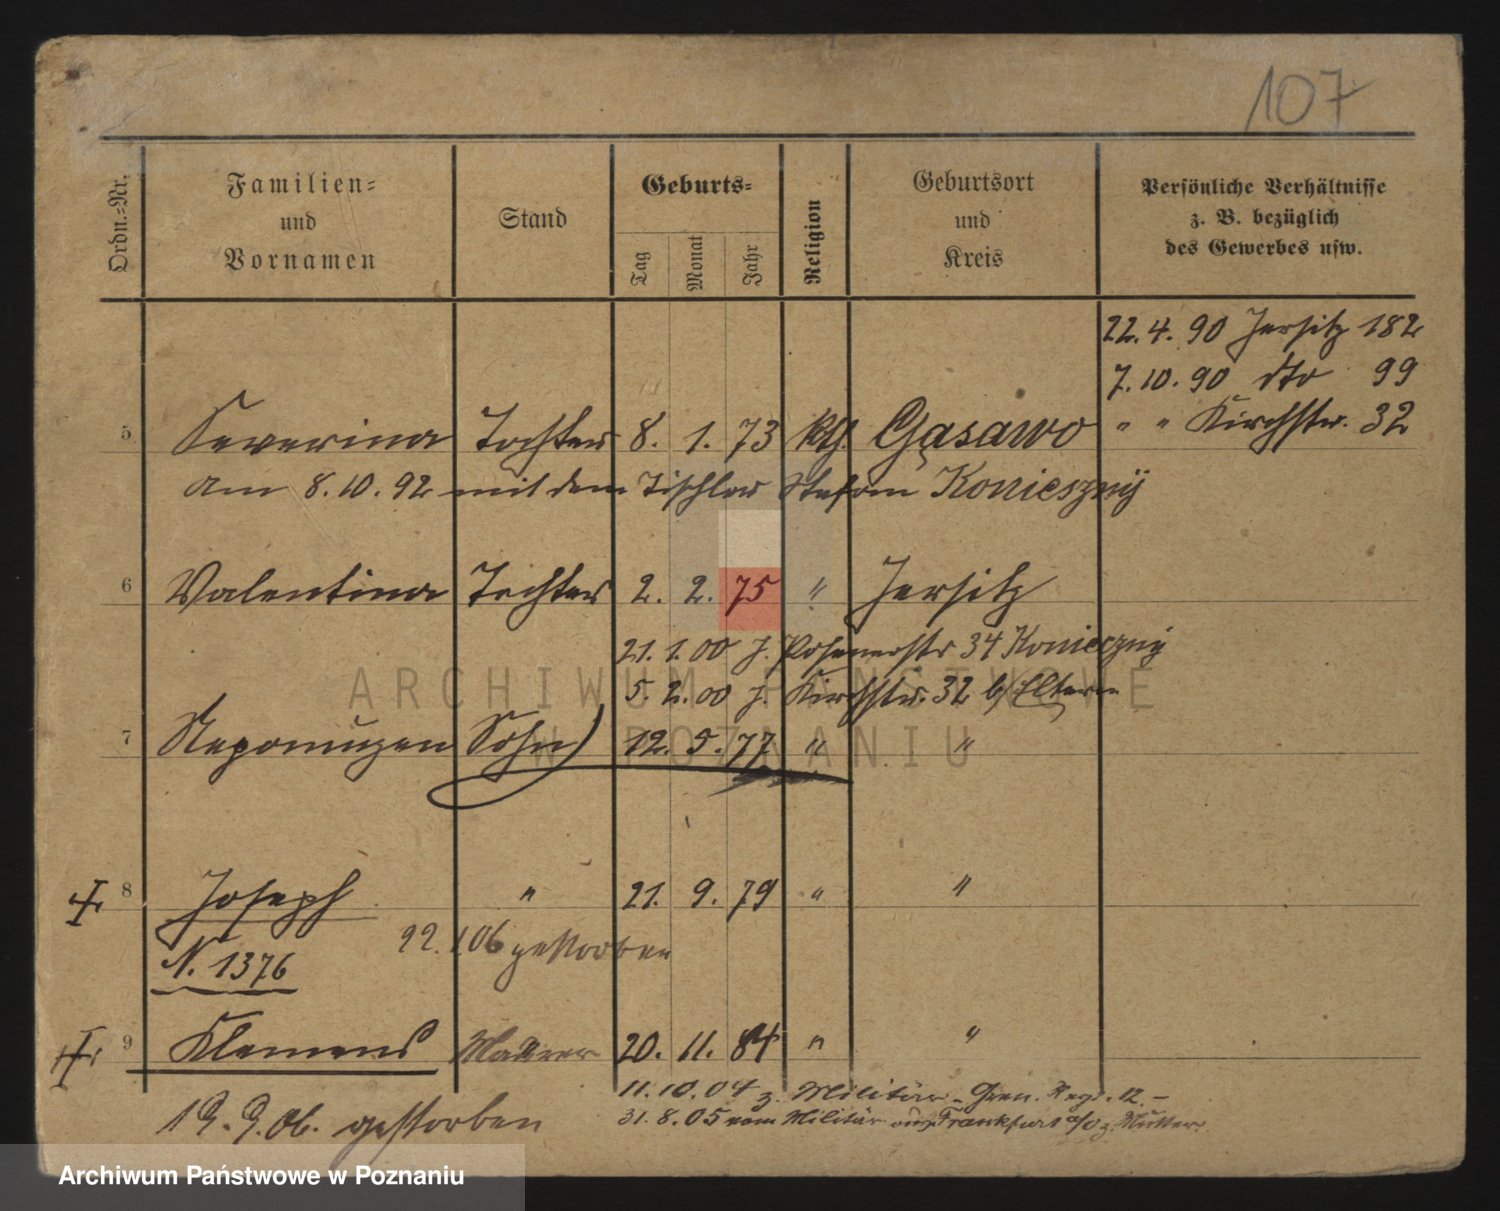 107
Ordn.=Nr.
Familien=
und
Vornamen
Stand
Geburts=
Tag
Monat
Jahr
Religion
Geburtsort
und
Kreis
Persönliche Verhältnisse
z. B. bezüglich
des Gewerbes usw.
22. 4. 90 Jersitz 182
7. 10. 90 dto 99
5 Severina Tochter 8. 1. 73 kth. Gąsawo " " Kirchstr. 32
am 8. 10. 92 mit dem Tischler Stefan Konieszny
6 Valentina Tochter 2. 2. 75 " Jersitz
21. 1. 00 J. Posenerstr 34 Konieczny
5. 2. 00 J. Kirchstr. 32 b/ Eltern
7 Nepomuzen Sohn 12. 5. 77 " "
8 Joseph " 21. 9. 79 " "
N. 1376
22. 1.06 gestorben
9 Klemens Maurer 20. 11. 84 " "
11. 10. 04 z. Militär - Gren. Regt. 12 -
19. 9. 06. gestorben
31. 8. 05 vom Militär aus Frankfurt a/O z. Mutter
ARCHIWUM PAŃSTWOWE
W POZNANIU
Archiwum Państwowe w Poznaniu